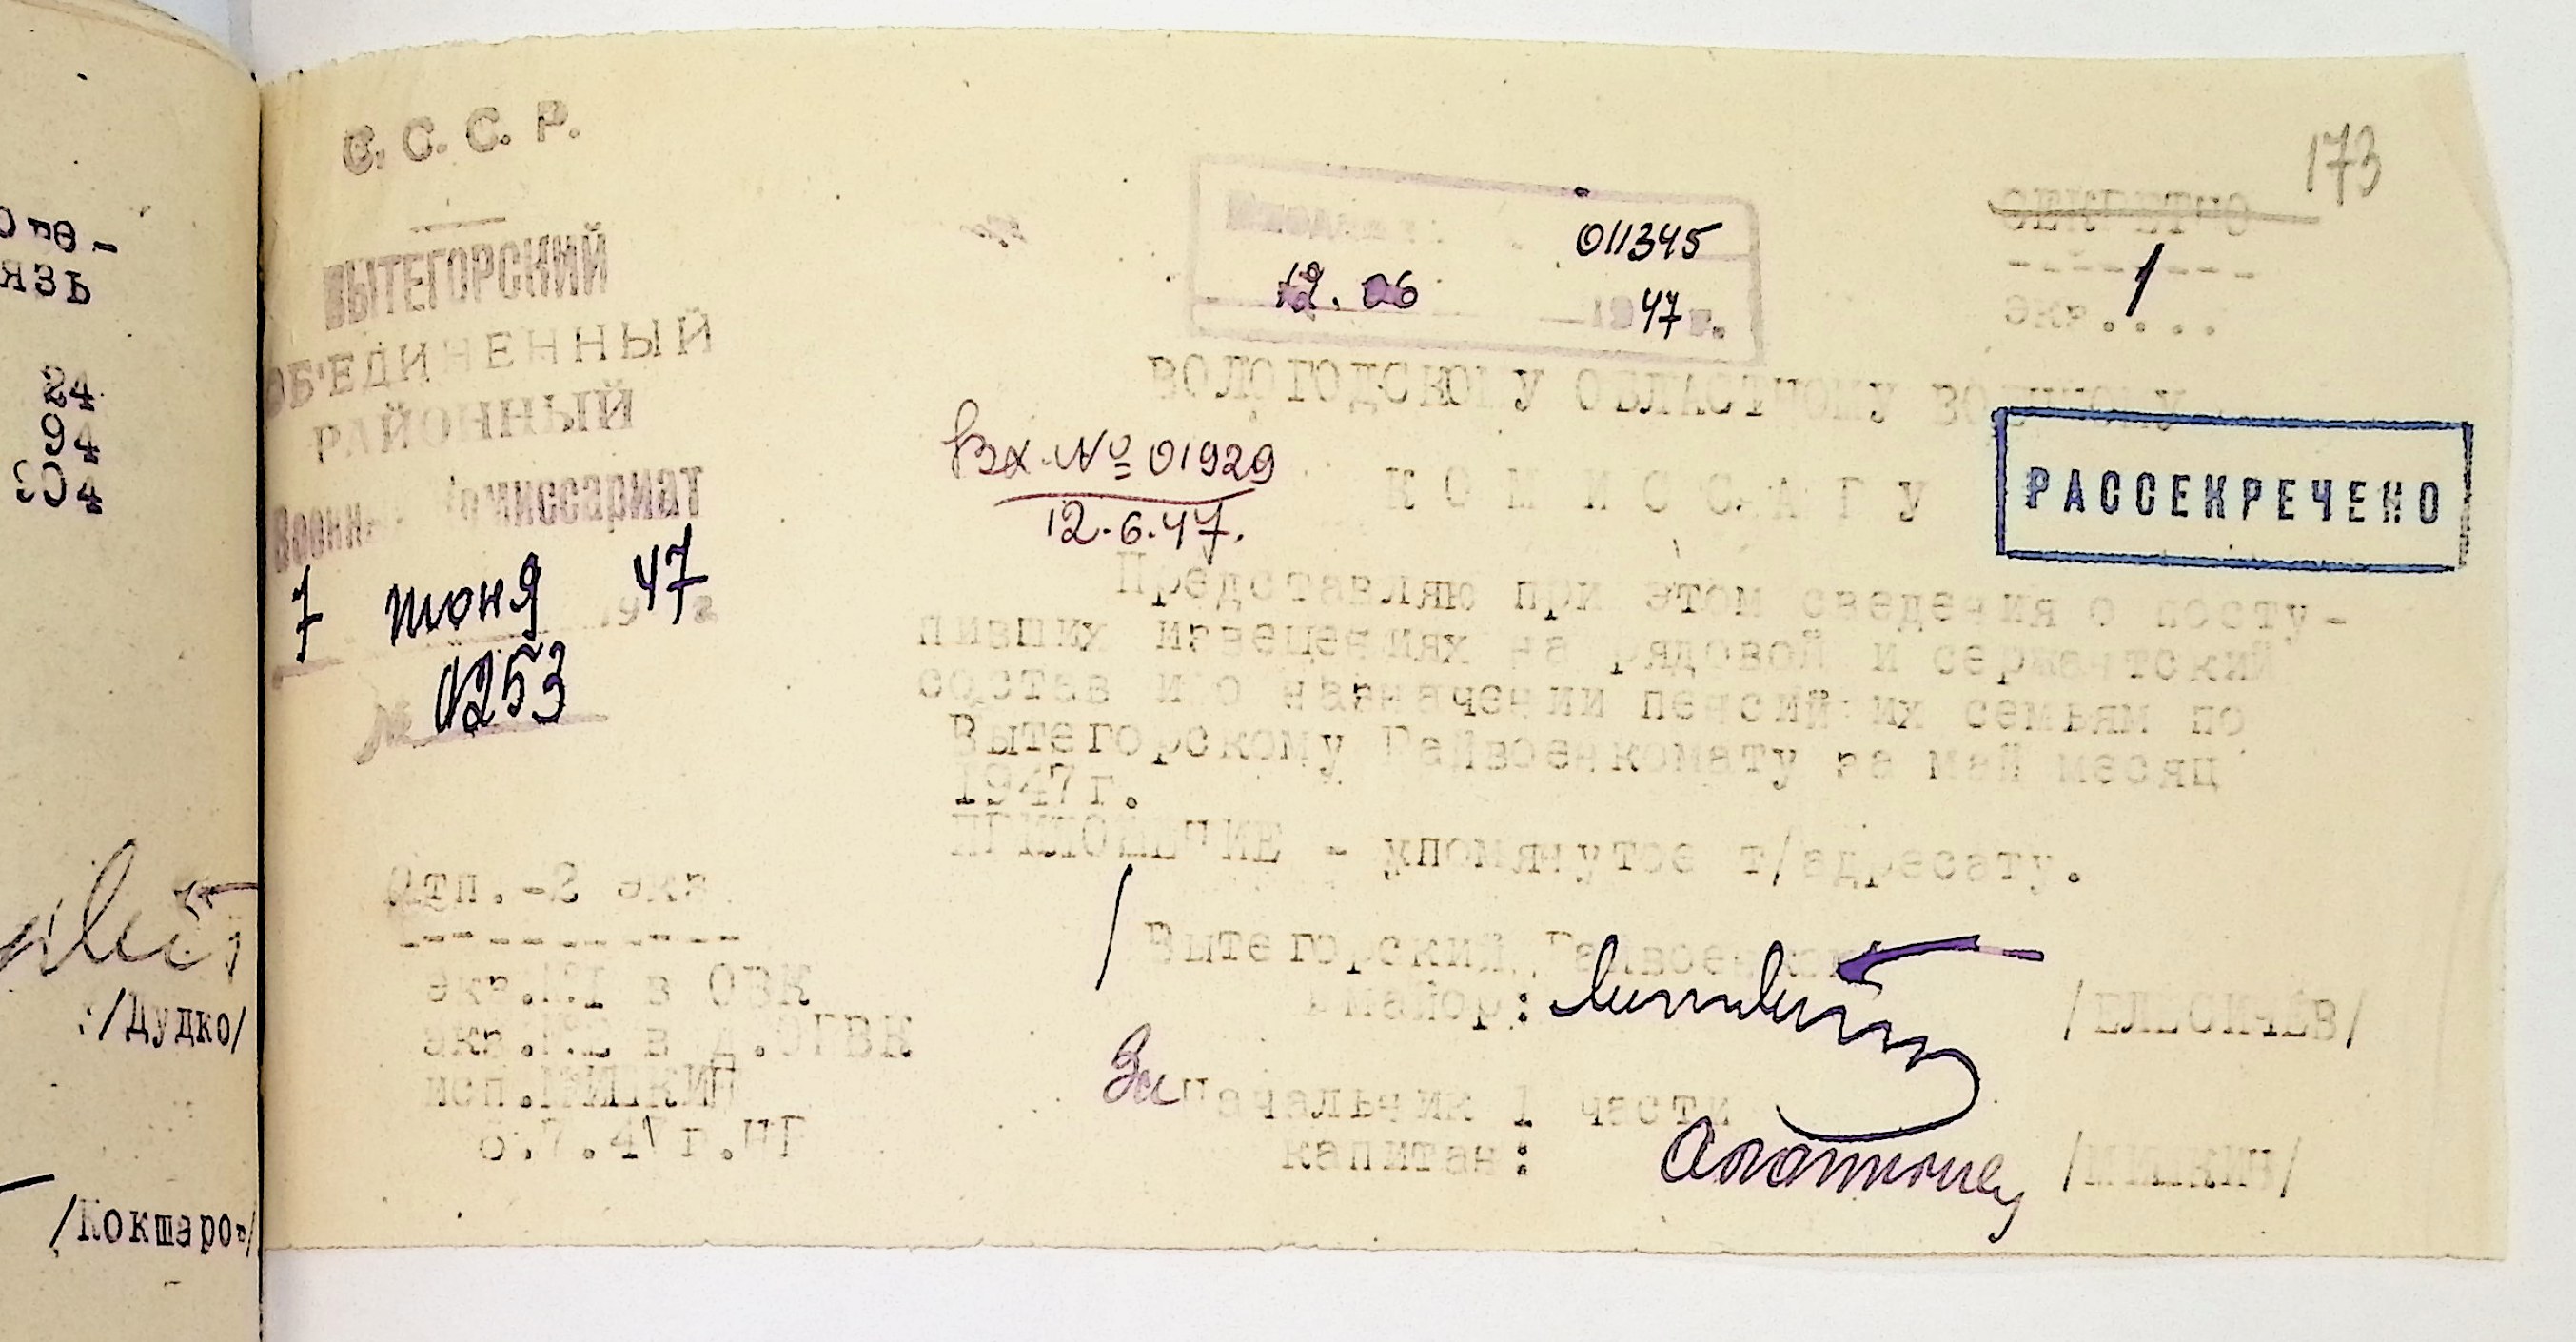 173
С. С. С. Р.
ВЫТЕГОРСКИЙ
ОБ'ЕДИНЕННЫЙ
РАЙОННЫЙ
Военный Комиссариат
7 июня 1947 г
№ 0253
011345
12. 06 1947 г.
СЕКРЕТНО
экз. 1
ВОЛОГОДСКОМУ ОБЛАСТНОМУ ВОЕННОМУ
К О М И С С А Р У
Вх. № 01929
12.6.47.
РАССЕКРЕЧЕНО
Представляю при этом сведения о посту-
пивших извещениях на рядовой и сержантский
состав и о назначении пенсий их семьям по
Вытегорскому Райвоенкомату за май месяц
1947г.
ПРИЛОЖЕНИЕ - упомянутое т/адресату.
Вытегорский Райвоенком
майор:
Зам начальник 1 части
капитан: /МИШКИН/
Отп.-2 экз
экз.№1 в ОВК
экз.№2 в д.ОРВК
исп.МИШКИН
6.7.47г.
язь
24
94
304
:/Дудко/
/Кокшаров/